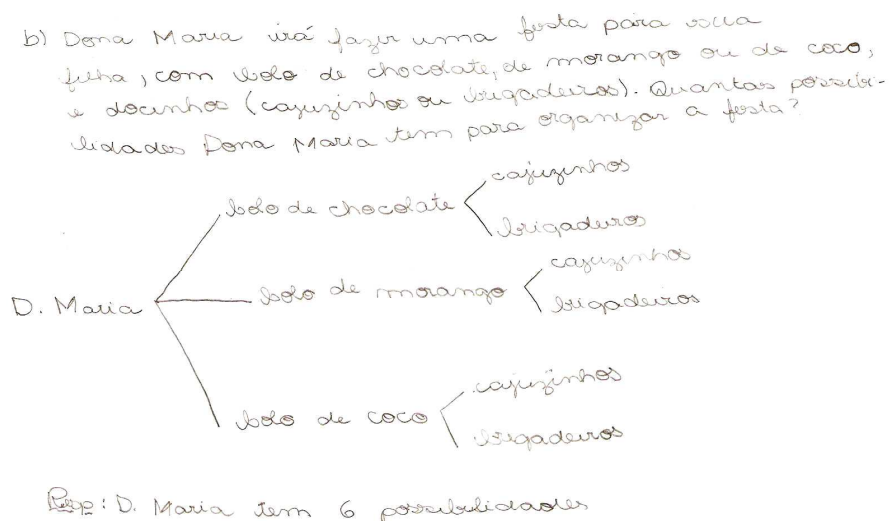 b) Dona Maria irá fazer uma festa para sua
filha, com bolo de chocolate, de morango ou de coco,
e docinhos (cajuzinhos ou brigadeiros). Quantas possibi-
lidades Dona Maria tem para organizar a festa?
cajuzinhos
bolo de chocolate
brigadeiros
cajuzinhos
D. Maria bolo de morango
brigadeiros
cajuzinhos
bolo de coco
brigadeiros
Resp: D. Maria tem 6 possibilidades